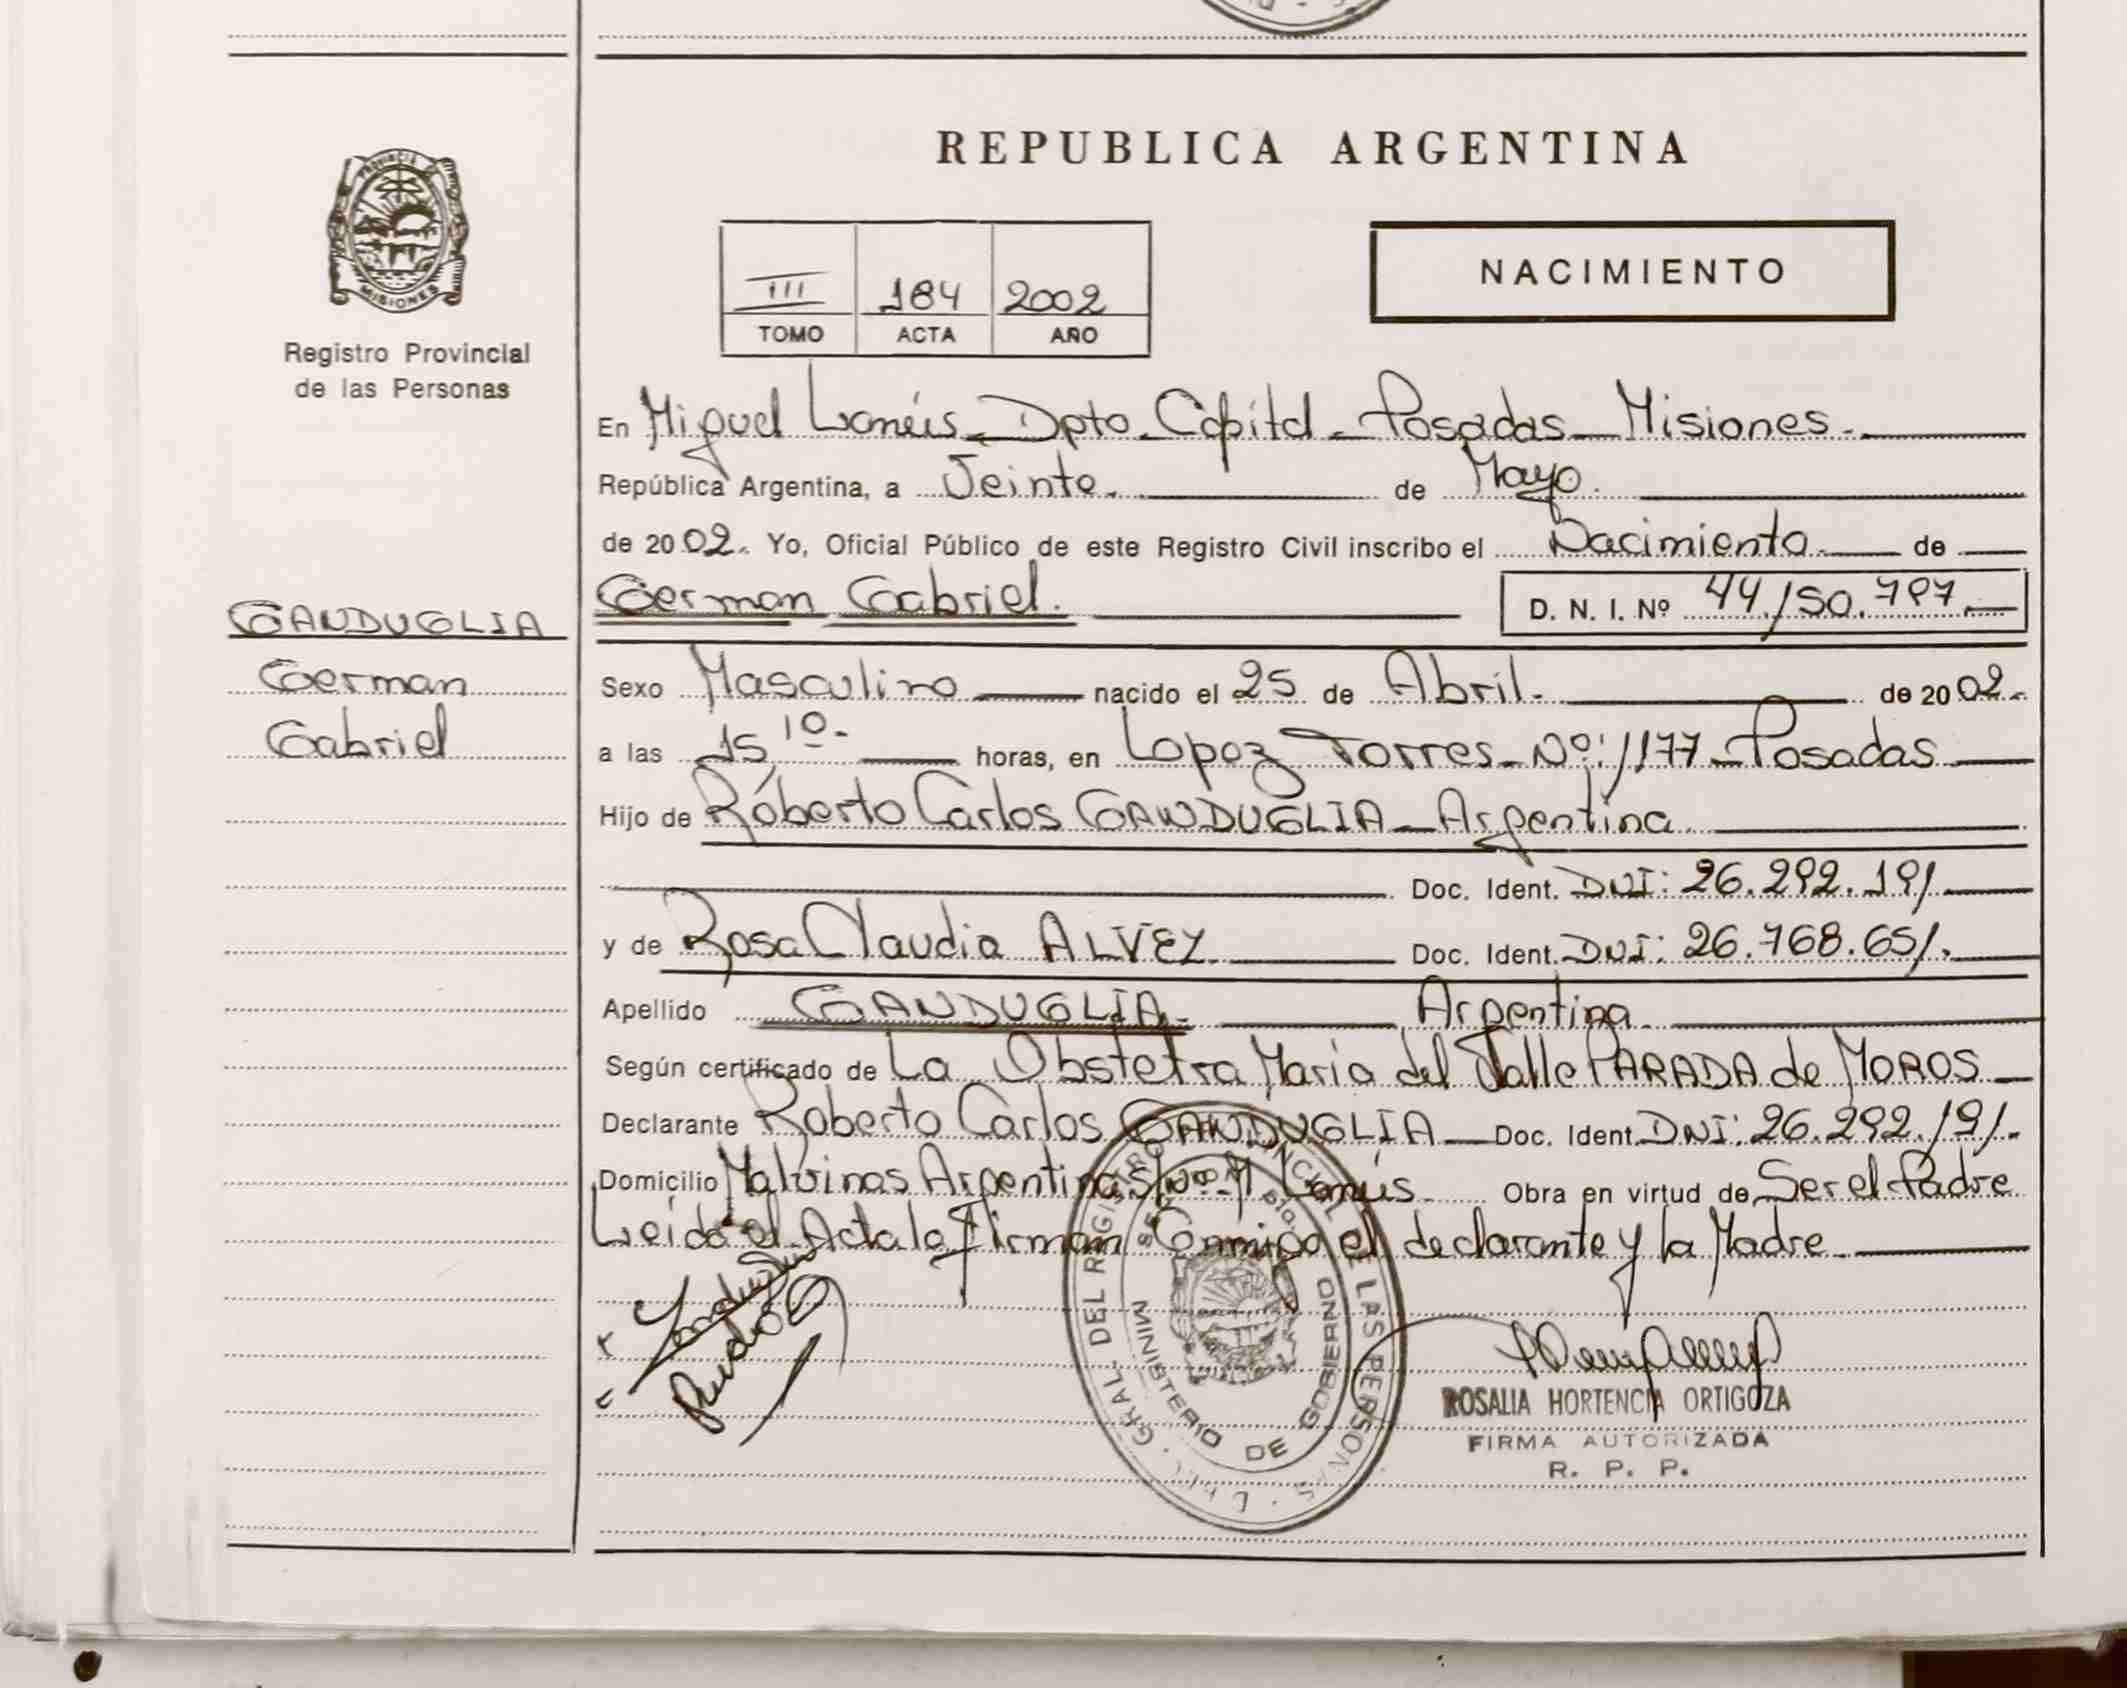 PROVINCIA
MISIONES
Registro Provincial
de las Personas
GANDUGLIA
German
Gabriel
REPUBLICA ARGENTINA
III 184 2002
TOMO ACTA AÑO
NACIMIENTO
En Miguel Lanús - Dpto. Capital - Posadas - Misiones.
República Argentina, a Veinte. de Mayo.
de 2002. Yo, Oficial Público de este Registro Civil inscribo el Nacimiento de
German Gabriel. D. N. I. Nº 44.150.797.
Sexo Masculino nacido el 25 de Abril. de 2002.
a las 15 10. horas, en Lopez Torres - Nº: 1177 - Posadas
Hijo de Roberto Carlos GANDUGLIA - Argentina
Doc. Ident. DNI: 26.292.191
y de Rosa Claudia ALVEZ Doc. Ident. DNI: 26.768.651.
Apellido GANDUGLIA - Argentina
Según certificado de La Obstetra María del Valle PARADA de MOROS
Declarante Roberto Carlos GANDUGLIA - Doc. Ident. DNI: 26.292.191.
Domicilio Malvinas Argentinas s/nº. M Lanús. Obra en virtud de Ser el Padre
Leída el Acta la firman Conmigo el declarante y la Madre
GRAL. DEL REGISTRO PROVINCIAL DE LAS PERSONAS
MINISTERIO DE GOBIERNO
ROSALIA HORTENCIA ORTIGOZA
FIRMA AUTORIZADA
R. P. P.